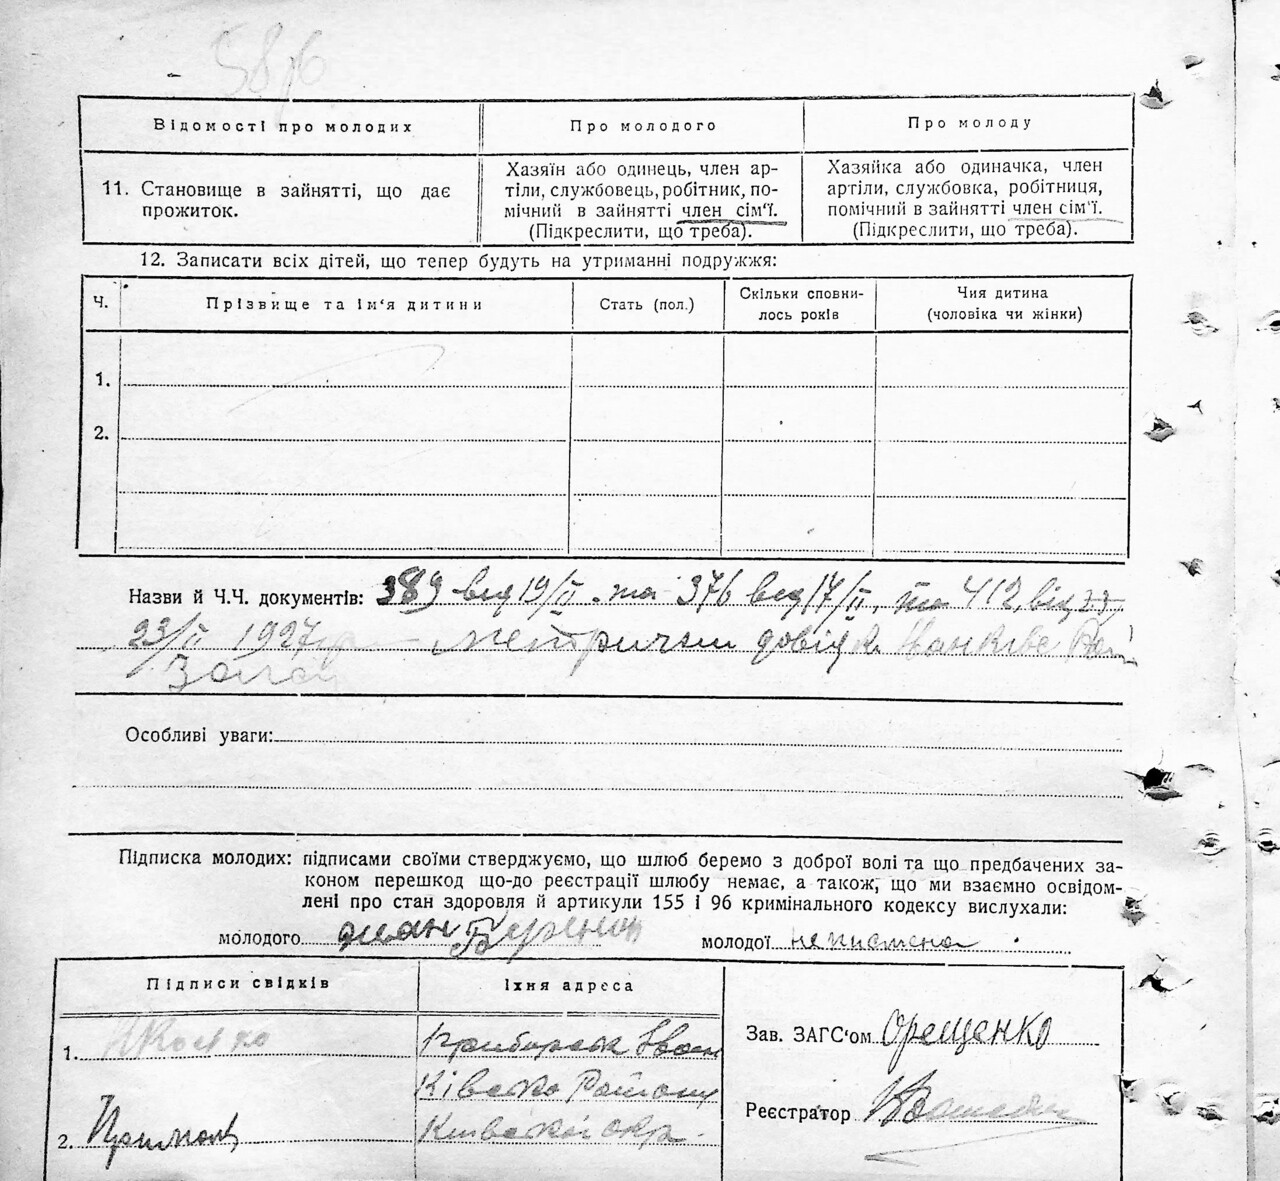 Відомості про молодих Про молодого Про молоду
11. Становище в зайнятті, що дає прожиток.
Хазяїн або одинець, член ар-
тіли, службовець, робітник, по-
мічний в зайнятті член сім'ї.
(Підкреслити, що треба).
Хазяйка або одиначка, член
артіли, службовка, робітниця,
помічний в зайнятті член сім'ї.
(Підкреслити, що треба).
12. Записати всіх дітей, що тепер будуть на утриманні подружжя:
Ч. Прізвище та ім'я дитини Стать (пол.) Скільки сповни-
лось років Чия дитина
(чоловіка чи жінки)
1.
2.
Назви й Ч.Ч. документів: 389 від 19/II та 376 від 17/II, та 412, від
23/II 1927
Особливі уваги:
Підписка молодих: підписами своїми стверджуємо, що шлюб беремо з доброї волі та що предбачених за-
коном перешкод що-до реєстрації шлюбу немає, а також, що ми взаємно освідом-
лені про стан здоровля й артикули 155 і 96 кримінального кодексу вислухали:
молодого молодої неписмена
Підписи свідків Їхня адреса
1.
2.
Ківсько Району
Київської окр.
Зав. ЗАГС'ом Орещенко
Реєстратор